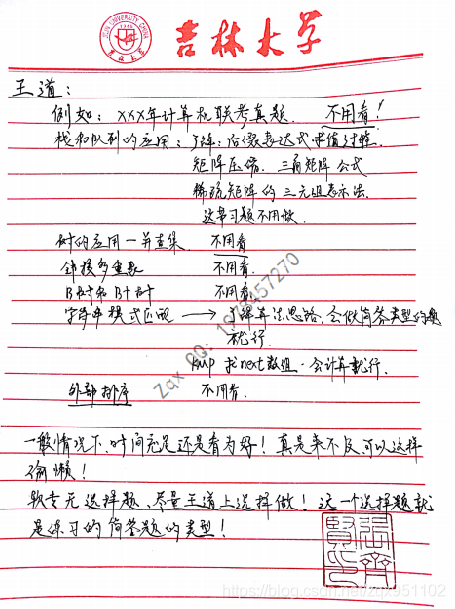 JILIN UNIVERSITY CHINA
1946
吉林大学
王道：
例如：XXX年计算机联考真题. 不用看！
栈和队列的应用：了解：后缀表达式求值过程.
矩阵压缩. 三角矩阵公式
稀疏矩阵的三元组表示法.
这章习题不用做.
树的应用-并查集 不用看
邻接多重表 不用看.
B树和B+树 不用看.
字符串模式匹配 → 了解算法思路, 会做简答类型的题
就行.
kmp 求next数组. 会计算就行.
外部排序 不用看.
一般情况下, 时间充足还是看为好！真是来不及, 可以这样
偷懒！
软专无选择题、尽量王道上选择做！这一个选择题就
是练习的简答题的类型！
Zqx QQ: 1943457270
https://blog.csdn.net/zqx951102